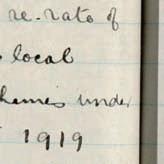 re. rate of
local
hemes under
1919